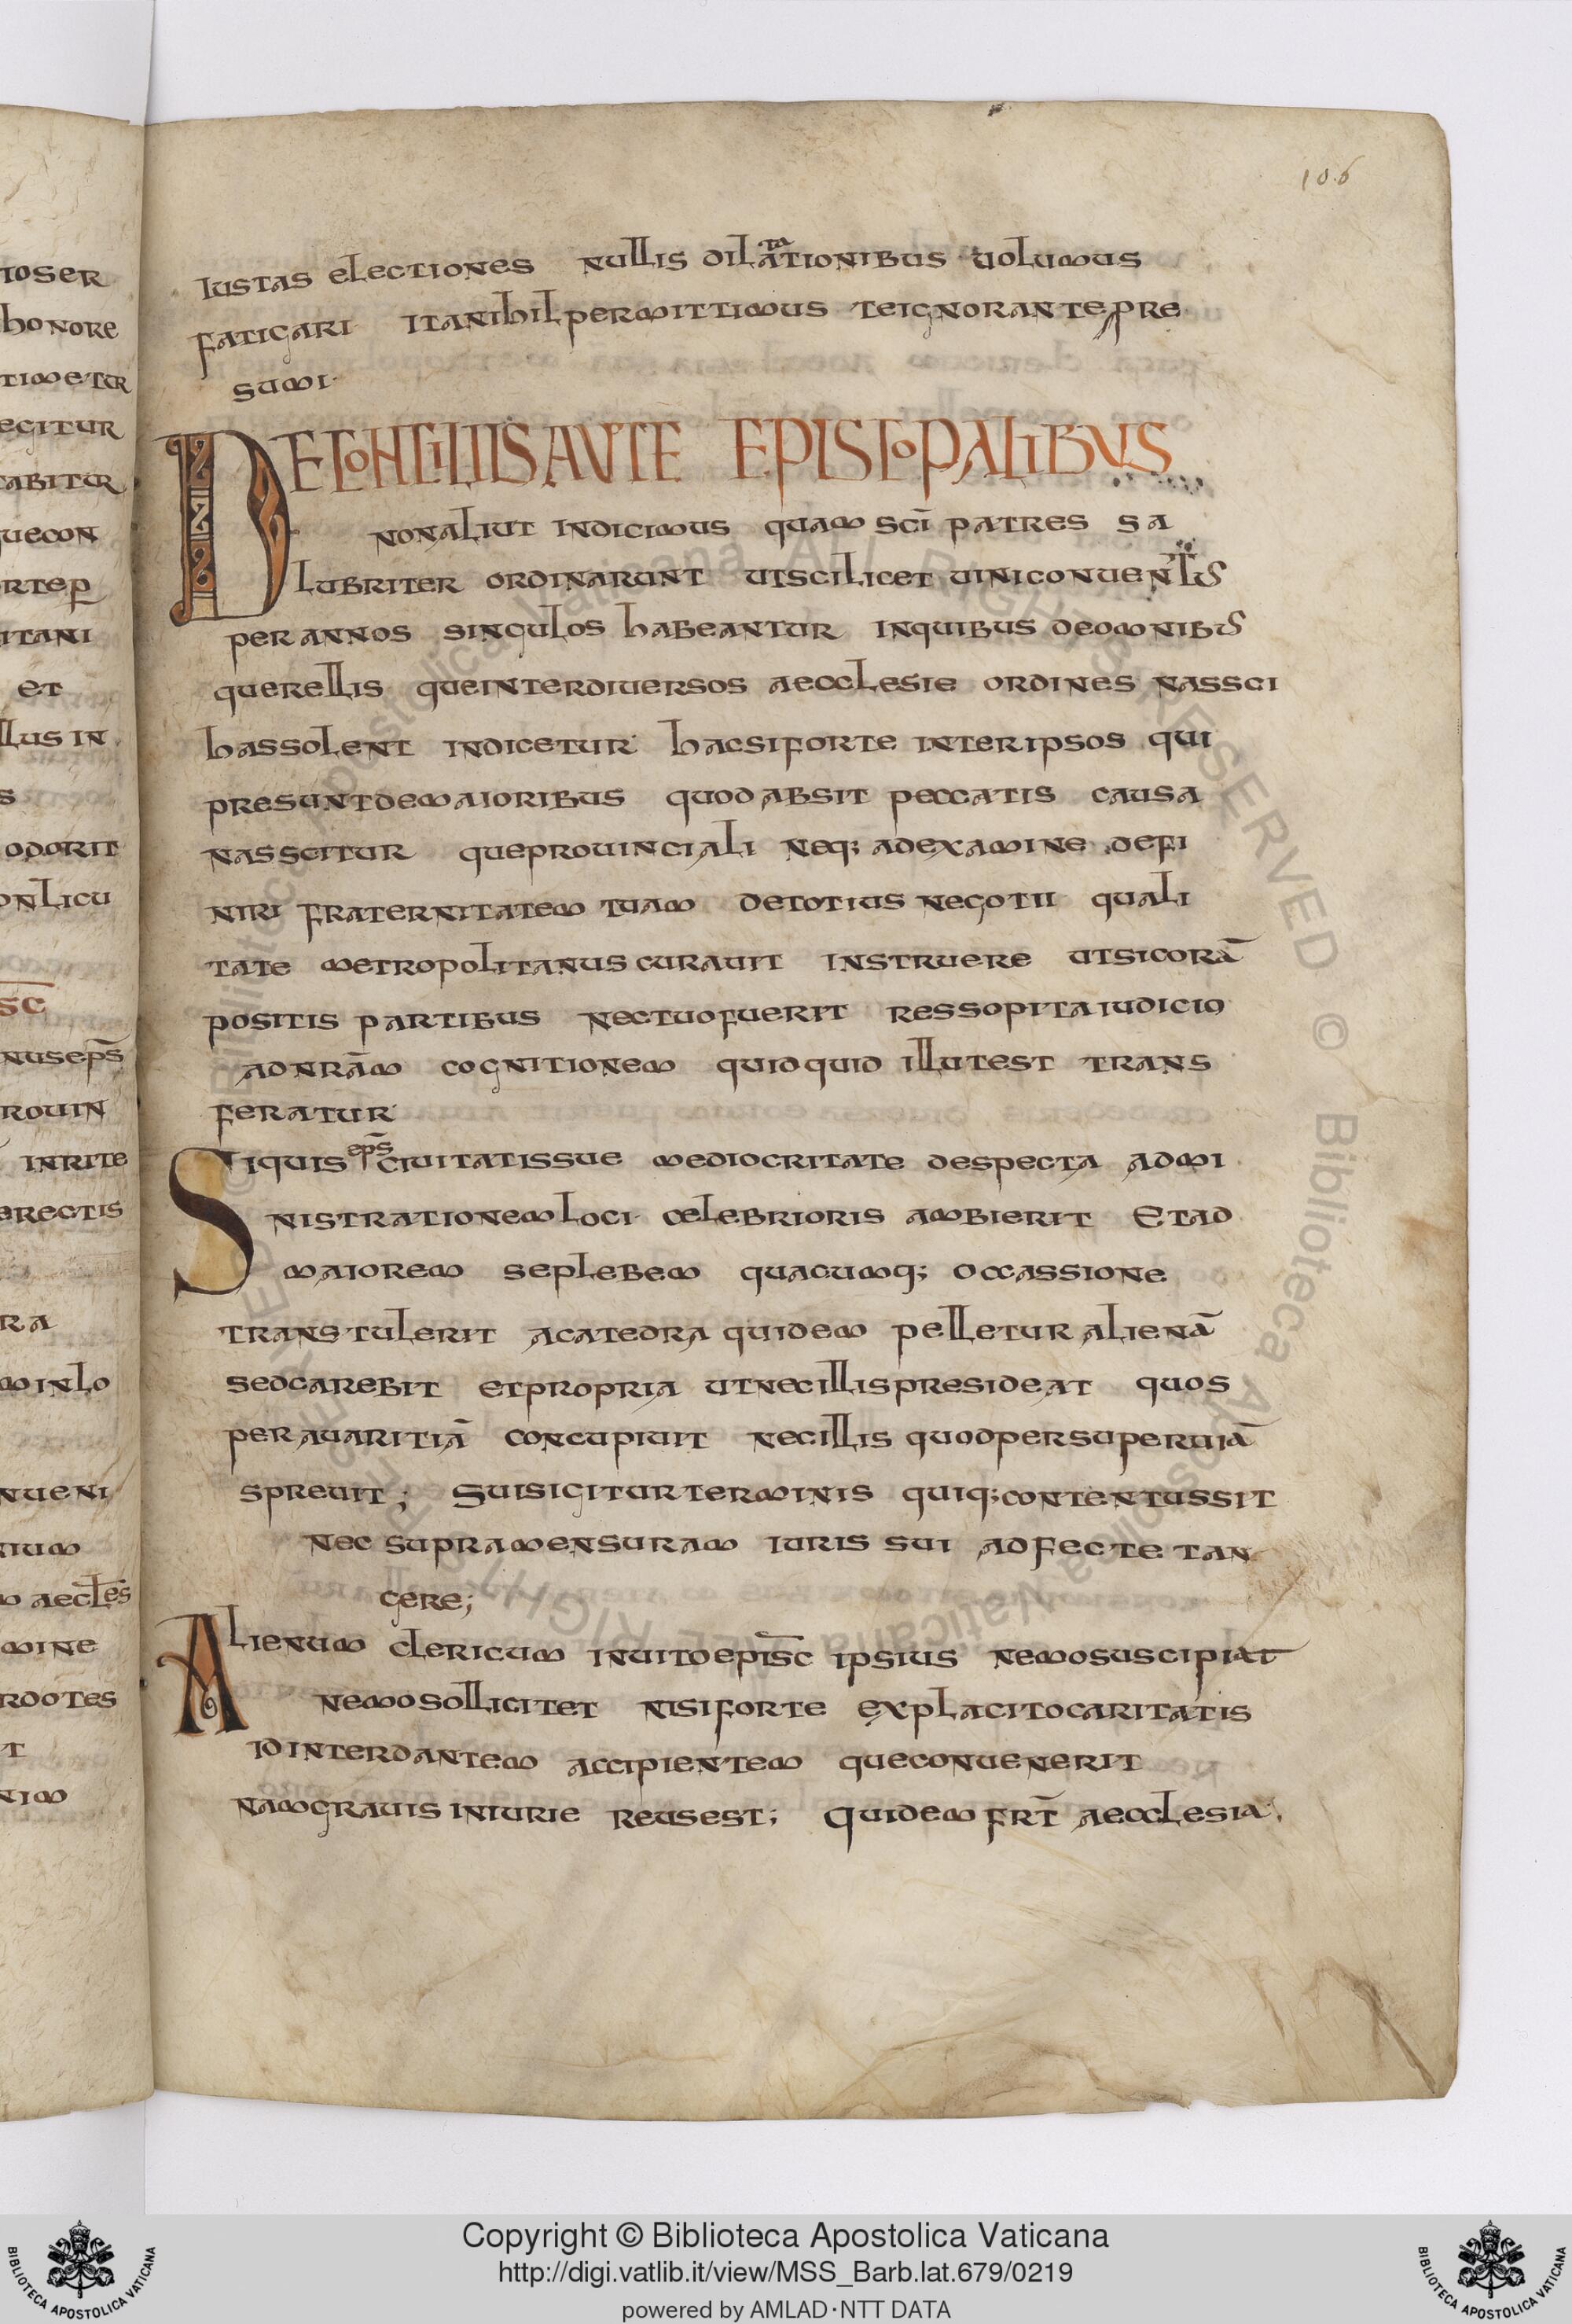 106
ioser
honore
timetur
egitur
tabitur
uecon
rtep̱
itani
et
llus in
s
odorit
onlicu
sc
nusep̄s
rouin
inrite
erectis
ra
minlo
nueni
nium
m aecl̄es
mine
rdotes
t
nim
iustas electiones nullis dilataationibus uolumus
fatigari itanihilpermittimus teignorantepre
sumi·
DECONCILIIS AVTE EPISCOPALIBVS
nonaliut indicimus quam sc̄i patres sa
lubriter ordinarunt utscilicet uiniconuent̄us
perannos singulos habeantur inquibus deomnibus
querellis queinterdiuersos aecclesie ordines nassci
hassolent indicetur· hacsiforte interipsos qui
presuntdemaioribus quodabsit peccatis causa
nasscitur queprouinciali neq; adexamine defi
niri fraternitatem tuam detotius negotii quali
tate metropolitanus curauit instruere utsicorā
positis partibus nectuofuerit ressopitaiudicio
adnrām cognitionem quidquid illutest trans
feratur·
Siquis ep̄s ciuitatissue mediocritate despecta admi
nistrationemloci· celebrioris ambierit Etad
maiorem seplebem quacumq; occassione
transtulerit acatedra quidem pelletur alienā
sedcarebit etpropria utnecillispresideat quos
perauaritiā concupiuit necillis quodpersuperuiā
spreuit; Suisigiturterminis quiq;contentussit
nec supramensuram iuris sui adfecte tan
gere;
Alienum clericum inuitoepīsc ipsius nemosuscipiat
nemosollicitet nisiforte explacitocaritatis
idinterdantem accipientem queconuenerit
namgrauis iniurie reusest; Quidem frt̄ aecclesia;
Copyright © Biblioteca Apostolica Vaticana
http://digi.vatlib.it/view/MSS_Barb.lat.679/0219
powered by AMLAD·NTT DATA
BIBLIOTECA APOSTOLICA VATICANA
BIBLIOTECA APOSTOLICA VATICANA